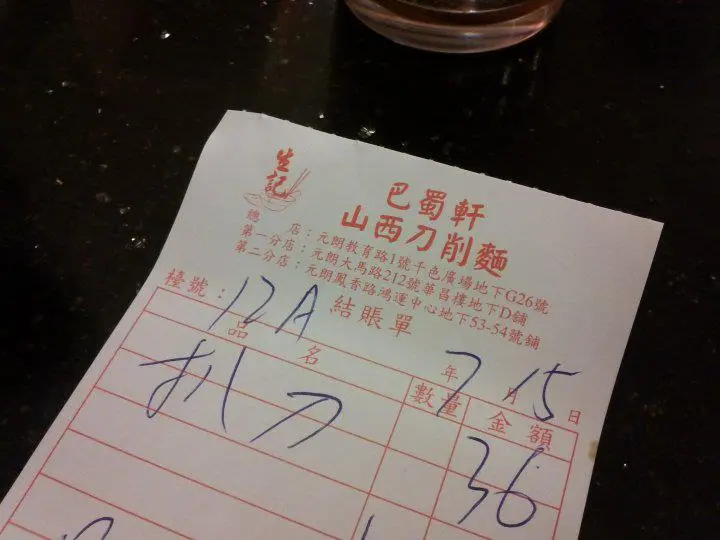 生記
巴蜀軒
山西刀削麵
總店：元朗教育路1號千色廣場地下G26號
第一分店：元朗大馬路212號華昌樓地下D舖
第二分店：元朗鳳香路鴻運中心地下53-54號舖
結賬單
檯號：12A
年7月15日
品名 數量 金額
扒刀 36